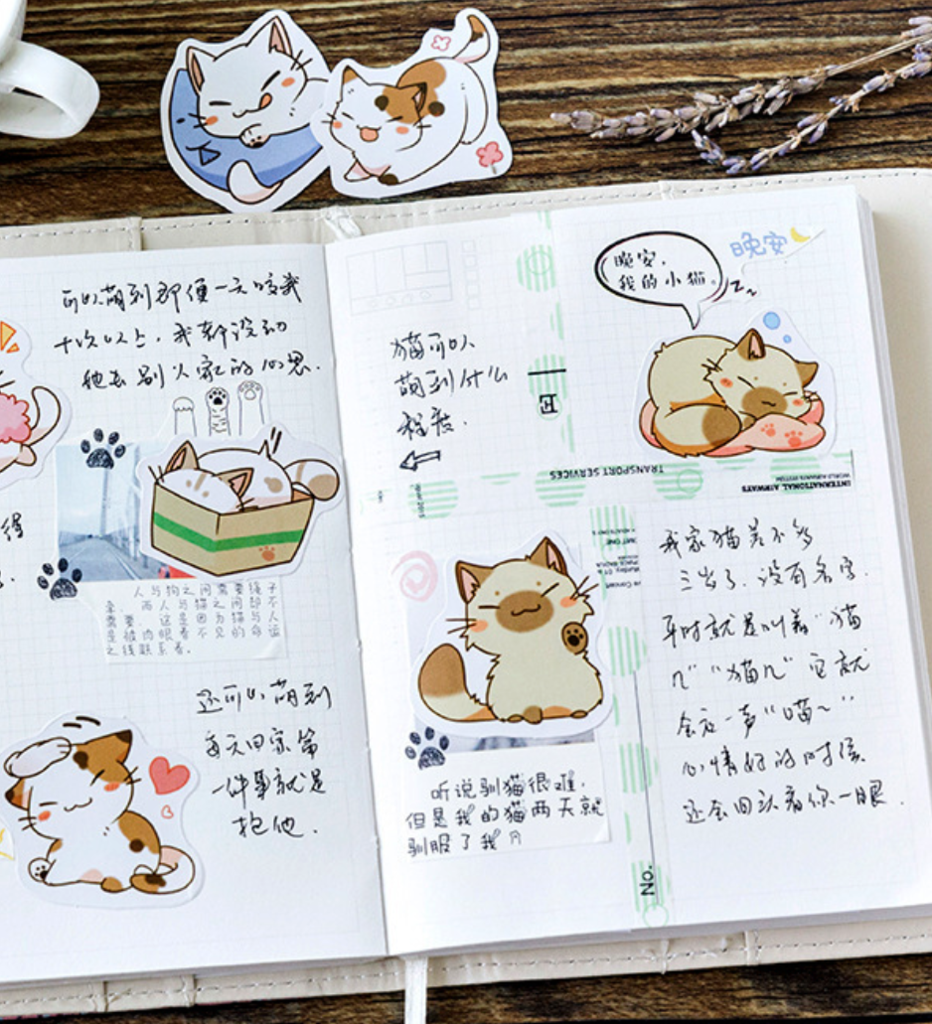 可以萌到即便一天咬我
十次以上，我都没动
他去别人家的心思.
得
人与狗之间需要绳子
牵，而人与猫之间却不
需要，这是因为猫与人
是被肉眼看不见的命运
之线联系着。
还可以萌到
每天回家第
一件事就是
抱他.
猫可以
萌到什么
程度.
晚安，
我的小猫。
晚安
E
TRANSPORT SERVICES
INTERNATIONAL AIRWAYS
WORLD AIRWAYS SYSTEM
听说驯猫很难，
但是我的猫两天就
驯服了我
我家猫差不多
三岁了.没有名字.
平时就是叫着"猫
儿""猫儿"它就
会应一声"喵~"
心情好的时候
还会回头看你一眼.
No.